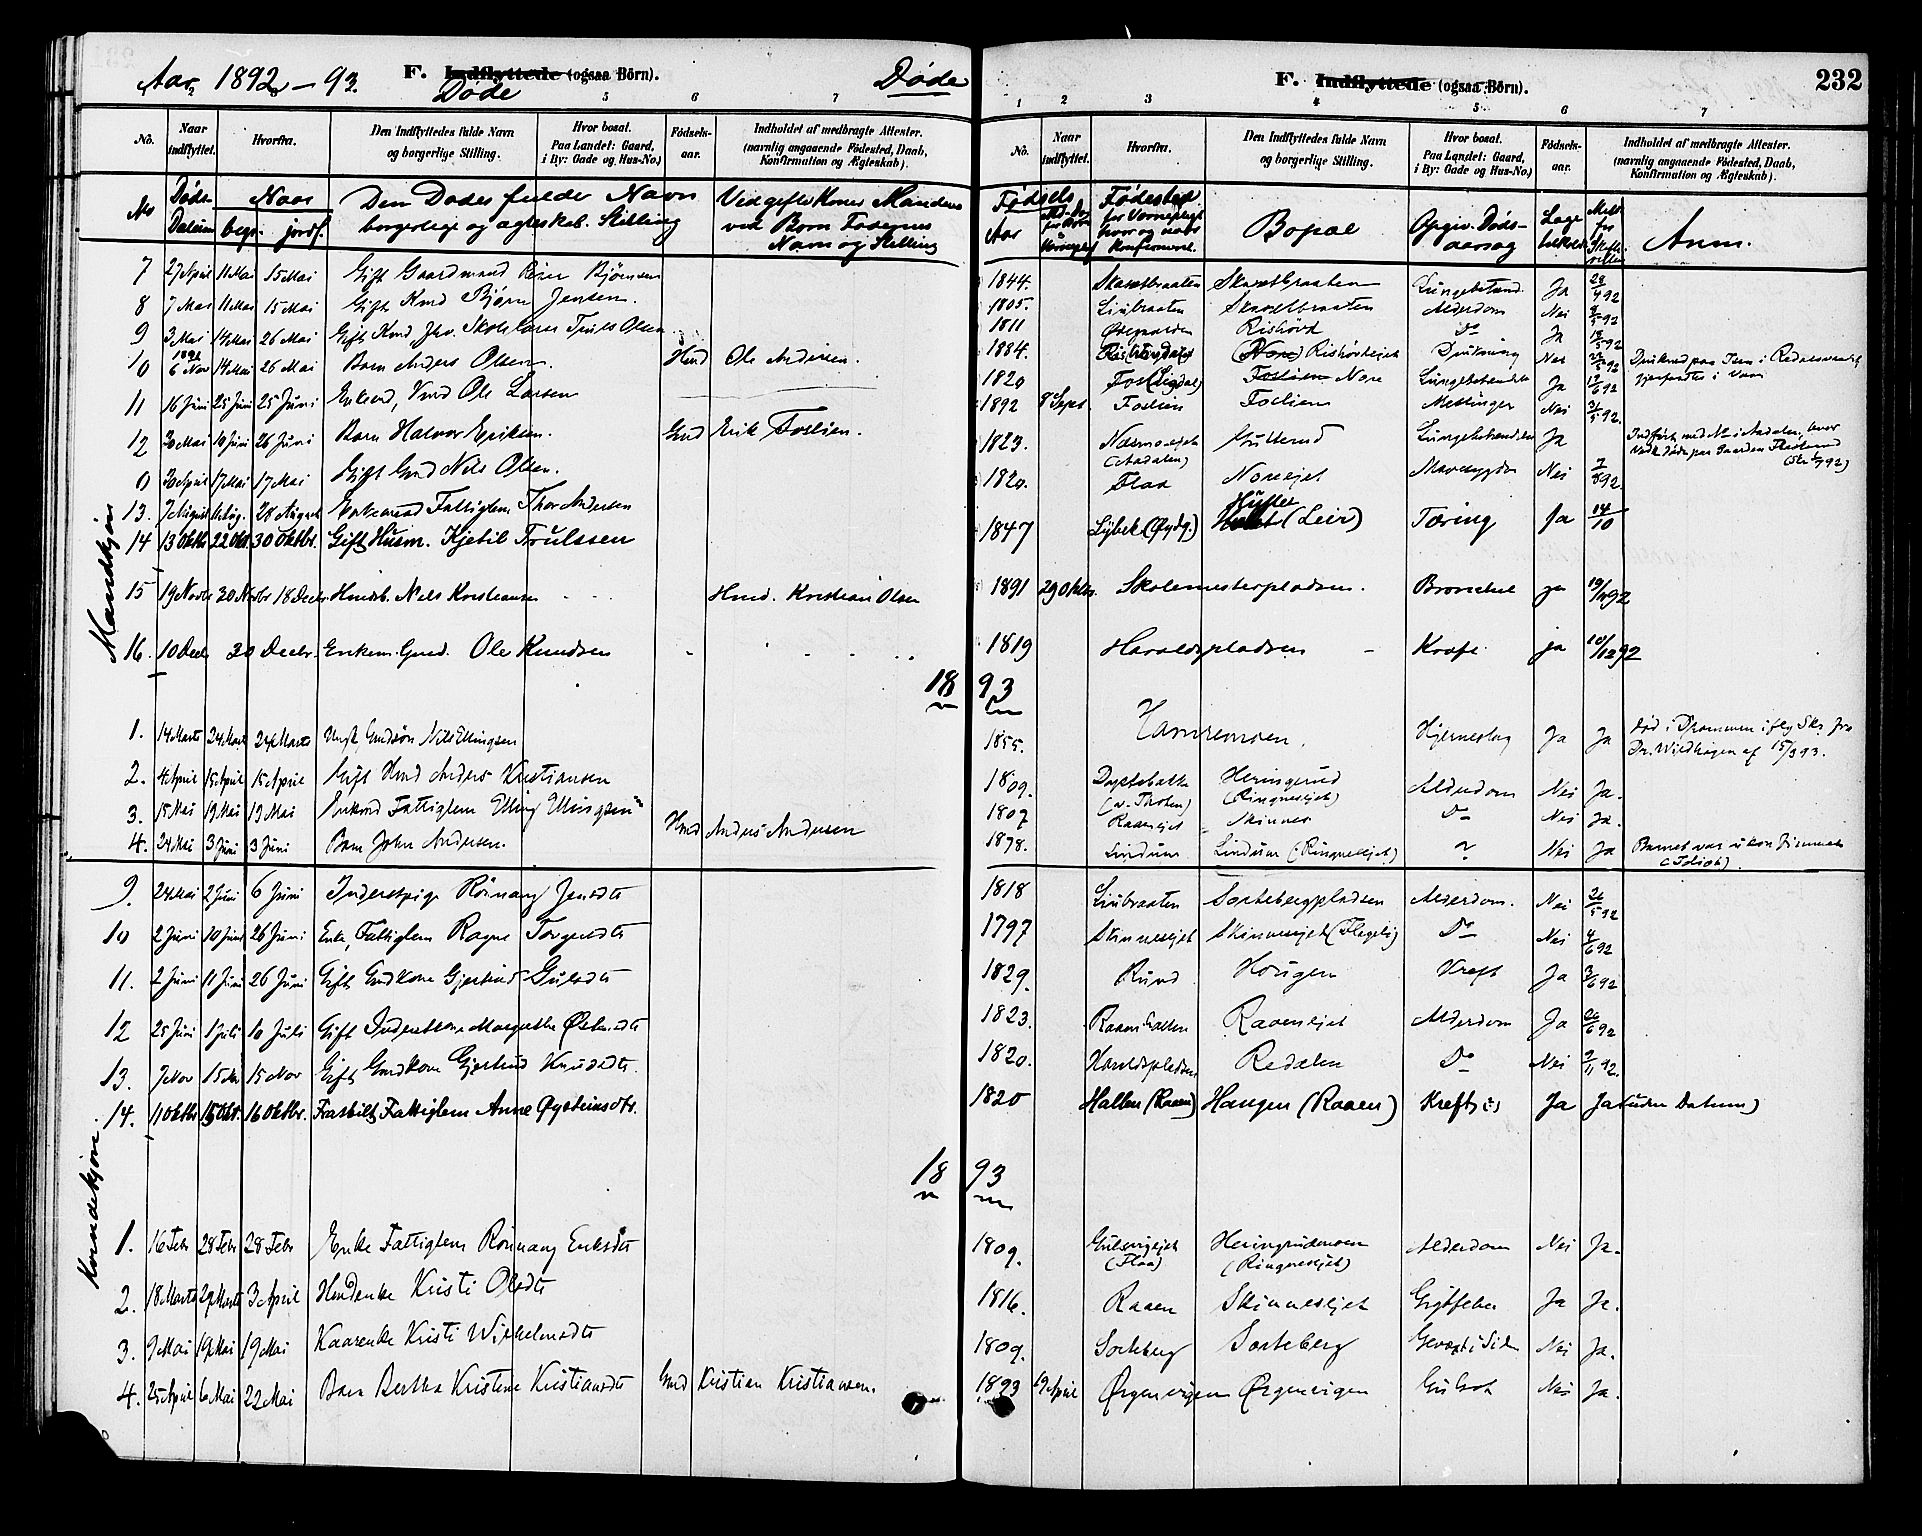 Aar 1892 – 93. F. Indflyttede (ogsaa Börn). Døde
Døde
5 6 7
No. Naar indflyttet. Hvorfra. Den Indflyttedes fulde Navn og borgerlige Stilling. Hvor bosat. Paa Landet: Gaard, i By: Gade og Hus-No.) Fødsels-aar. Indholdet af medbragte Attester. (navnlig angaaende Födested, Daab, Konfirmation og Ægteskab).
No Døds-Datum Naar begr. jordf. Den Dødes fulde Navn borgerlige og ægteskab. Stilling Ved gifte Koner Mandens ved Børn Faderens Navn og Stilling
Mandkjøn
7 27 April 11 Mai 15 Mai Gift Gaardmand Peder Bjørnsen
8 7 Mai 11 Mai 15 Mai Gift Kmd Bjørn Jensen.
9 3 Mai 14 Mai 26 Mai Gift Kmd, fhv. Skolelærer Truls Olsen
10 1891 6 Nov 14 Mai 26 Mai Barn Anders Olsen Hmd Ole Andersen.
11 16 Juni 25 Juni 25 Juni Enkemd, Ole Larsen
12 30 Mai 10 Juni 26 Juni Barn Halvor Eriksen. Gmd Erik Foslien.
0 30 April 17 Mai 17 Mai Gift Gmd Nils Olsen.
13. 7 August 28 August Enkemand Fattiglem Thor Andersen
14 13 Oktbr 22 Okt 30 Oktbr. Gift Husm. Kjetil Trulssen
15 19 Novbr 30 Novbr 18 Decbr. Nils Kristiansen Hmd. Kristian Olsen
16. 10 Decbr 20 Decbr. Enkem. Gmd. Ole Knudsen
18
1. 14 Marts 24 Marts 24 Marts Ungk. Gmdsøn Nils Ellingsen
2. 4 April 15 April 15 April Gift Hmd Anders Kristiansen
3. 15 Mai 19 Mai 19 Mai Enkemd Fattiglem Elling Ellingsen
4. 24 Mai 3 Juni 3 Juni Barn John Andersen. Hmd Anders Andersen
Kvindekjøn.
9. 24 Mai 2 Juni 6 Juni Inderstpige Rönnaug Jensdtr
10 2 Juni 10 Juni 26 Juni Enke, Fattiglem Ragne Torgersdtr
11. 2 Juni 11 Juni 26 Juni Gift Gmdkone Gjertrud Gulsdtr
12 25 Juni 1 Juli 10 Juli Gift Inderstkone Margrethe
13. 7 Nov 15 Nov 15 Nov Gift Gmdkone Gjertrud Knudsdtr.
14. 11 Oktbr 15 Okt. 16 Oktbr. Fraskilt Fattiglem Anne Øysteinsdtr.
18
1. 16 Febr 28 Febr 28 Febr Enke Fattiglem Rönnaug Eriksdtr
2. 18 Marts 29 Marts 3 April Hmdenke Kristi Olsdtr
3. 9 Mai 19 Mai 19 Mai Kaarenke Kristi Wilhelmsdtr
4. 25 April 6 Mai 22 Mai Barn Bertha Kristine Kristiansdtr Gmd Kristian Kristiansen.
F. Indflyttede (ogsaa Börn). 232
1 2 3 4 5 6 7
No. Naar indflyttet. Hvorfra. Den Indflyttedes fulde Navn og borgerlige Stilling. Hvor bosat. Paa Landet: Gaard, i By: Gade og Hus-No.) Födsels-aar. Indholdet af medbragte Attester. (navnlig angaaende Födested, Daab, Konfirmation og Ægteskab).
Fødsels Aar Fødested for Værnepligt hvor og naar konfirmeret. Bopæl Opgiv. Døds-aarsag Læge Anm.
1844. Skarsetbraaten Skarsetbraaten Lungebetænd. Ja 28/4 92
1805. Liubraaten Skarsetbraaten Alderdom Nei 8/5 92
1811 Østgaarden Rishövd Do Ja
1884. (Nore) Rishövdejet Drukning Nei
1820 Fos (Sigdal) Foslien Nore Lungebetændelse Ja
1892 8 Sept. Foslien Foslien Nei 31/5 92.
1823. Næsmoejet (Aadalen) Lungebetændelse Ja
1820. Flaa Noreejet Mavesygdom Nei
1847 Lybek (Øydg.) Huset (Leir) Tæring Ja 14/10
1891 29 Oktbr. Skolemesterpladsen. Bronchit ja 19/11 92
1819 Haraldspladsen – Kræft ja 10/12 92
93
1855. Hamremoen. Hjerneslag Ja Ja död i Drammen ifølg Skr. fra Dr. Wildhagen af 15/3 93.
1809. (v. Thoten) Heringrud (Ringnesejet) Alderdom Nei Ja.
1807 Raaenejet Skinnes Do Nei Ja.
1878. Lindum Lindum (Ringnesejet) ? Nei Ja Barnet var ukonfirmeret (Idiot).
1818 Liubraaten Sortebergpladsen Alderdom. Nei 26/5 92
1797 Skinnesejet Skinnesejet Do Nei 4/6 92
1829. Rund Hougen Kreft Ja 3/6 92
1823. Raaen Raaenejet Alderdom Ja 26/6 92
1820. Haraldspladsen Redalen Do Nei 9/11 92.
1820 Hallen (Raaen) Haugen (Raaen) Kreft Ja Ja (uden Datum)
93
1809. Gulsvigejet (Flaa) Heringrudmoen (Ringnesejet) Alderdom Nei Ja.
1816. Raaen Skinnesejet Gigtfeber Ja Ja.
1809. Sorteberg Sorteberg Nei Ja.
1893 19 April Ørgenvigen Ørgenvigen Gulsot Nei Ja.